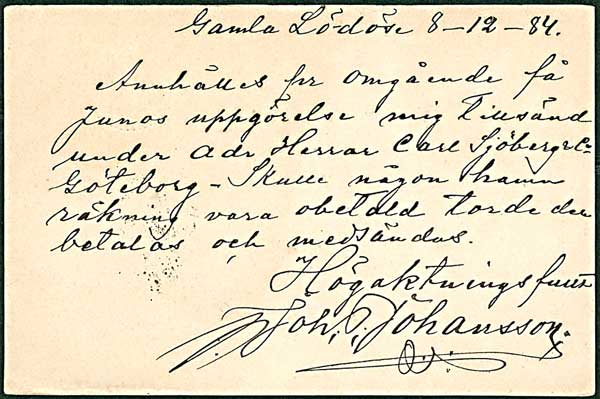 Gamla Lödöse 8-12-84.
Anhålles pr omgående få
Junos uppgörelse mig tillsänd
under adr Herrar Carl Sjöberg & Co
Göteborg - Skulle någon hamn
räkning vara obetald torde den
betalas och medsändas.
Högaktningsfullt
Joh. P. Johansson.